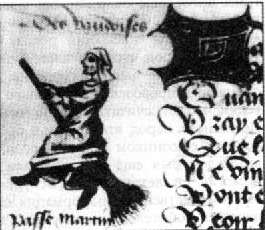 Des vaudoises
Quan
Vray e
Que l
Ne vin
Vont e
Veoir
passe martin